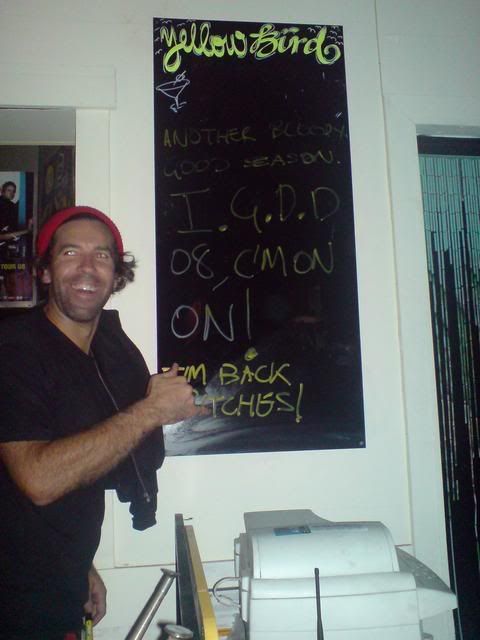 Yellow Bird
ANOTHER BLOODY
GOOD SEASON.
I.G.D.D
08, C'MON
ON!
I'M BACK
TCHES!
TOUR 08